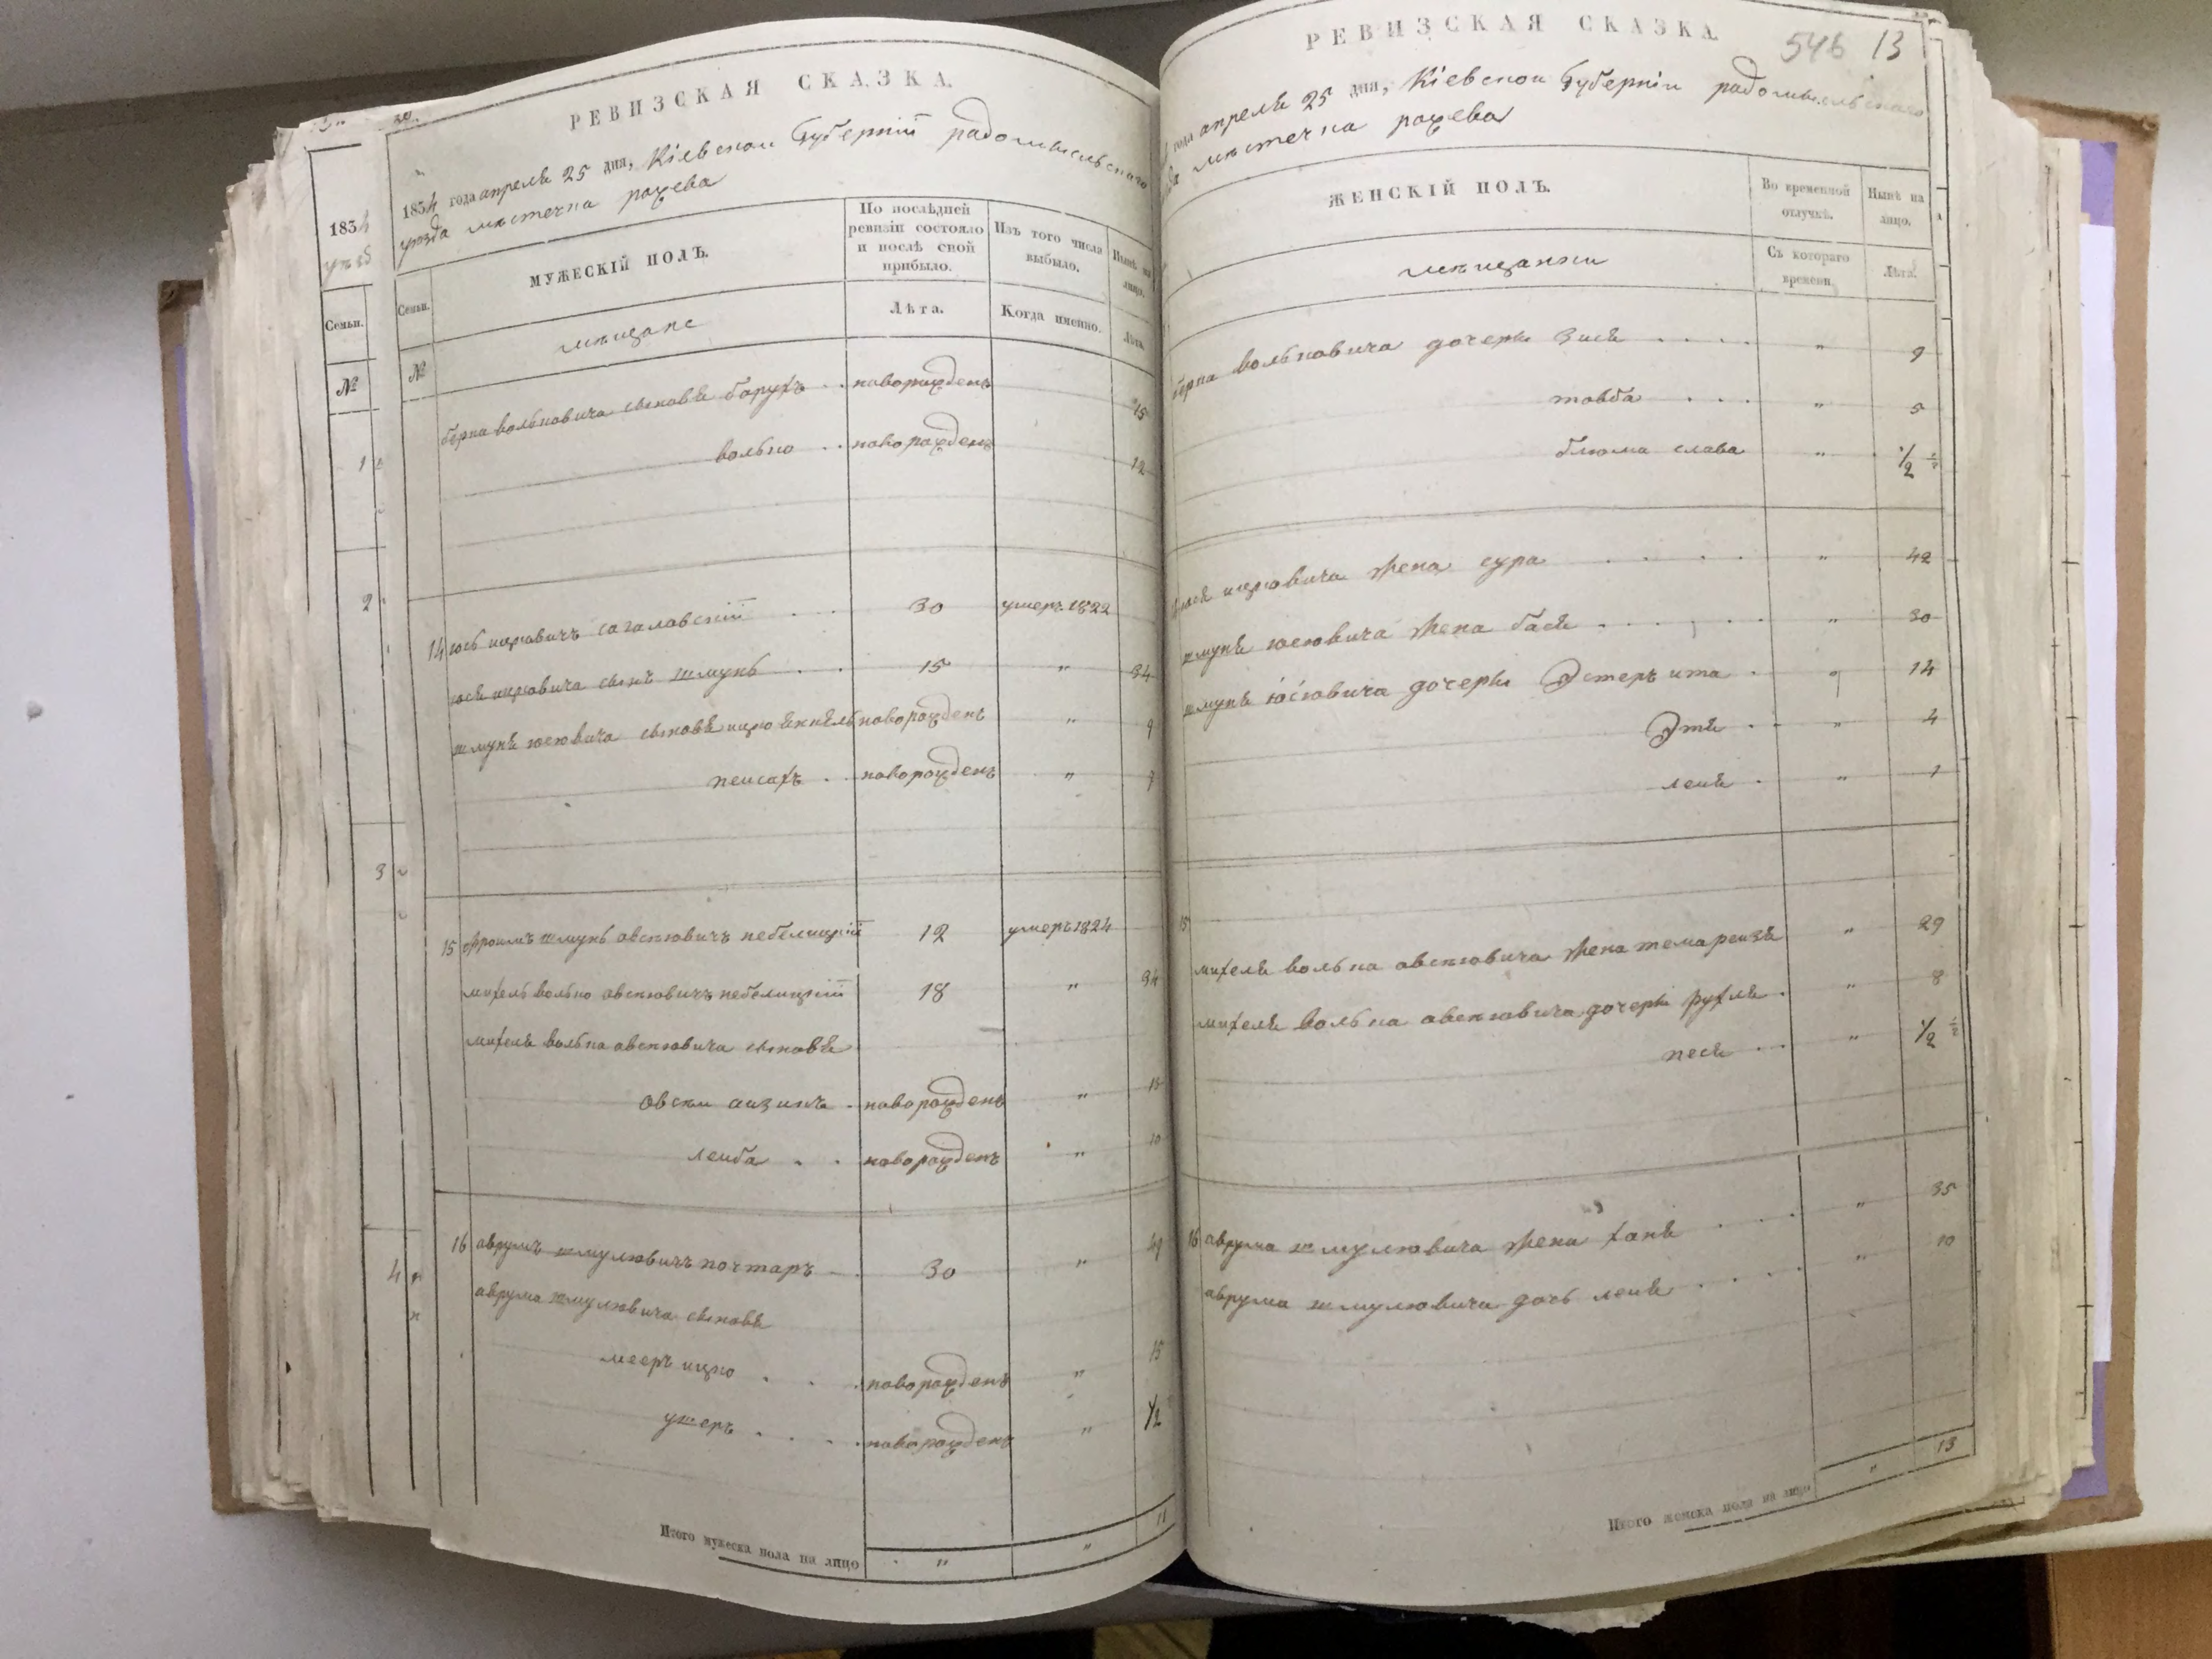 РЕВИЗСКАЯ СКАЗКА.
1834 года апреля 25 дня, Кіевской Губерніи радомысльскаго
уезда местечка рожева
Семьи.
МУЖЕСКІЙ ПОЛЪ.
По послѣдней ревизіи состояло и послѣ сной прибыло.
Изъ того числа выбыло.
Нынѣ на лицо.
№
мещане
Лѣта.
Когда именно.
Лѣта.
берка вольковича сыновя барухъ новорожденъ 15
волько новорожденъ 12
14 юсь ицковичъ сагаловскій 30 умеръ 1822
юся ицковича сынъ шмуль 15 " 34
шмуля юсювича сыновя ицко янкель новорожденъ " 9
пейсахъ новорожденъ "
15 фроимъ шмуль овсіювичъ небелицкій 12 умеръ 1824
михель волько овсіювичъ небелицкій 18 " 34
михеля волька овсіювича сыновя
овсей айзикъ новорожденъ " 15
лейба новорожденъ " 10
16 аврумъ шмулювичъ почтаръ 30 "
аврума шмулювича сыновя
мееръ ицко новорожденъ " 15
ушеръ новорожденъ " 1/2
Итого мужеска пола на лицо " " 11
1834
Семьи.
№
1
2
3
4
РЕВИЗСКАЯ СКАЗКА
546 13
года апреля 25 дня, Кіевской Губерніи радомысльскаго
местечка рожева
ЖЕНСКІЙ ПОЛЪ.
Во временной отлучкѣ.
Нынѣ на лицо.
мещанки
Съ котораго времени.
Лѣта.
берка вольковича дочери зися " 9
товба " 5
блюма слава " 1/2
юся ицковича жена сура " 42
шмуля юсювича жена бася " 30
шмуля юсювича дочери Эстеръ ита " 14
Этя " 4
лея " 1
15
михеля волька овсіювича жена тема рейзя " 29
михеля волька овсіювича дочери рухля " 8
песя " 1/2
16 аврума шмулювича жена ханя " 35
аврума шмулювича дочь лея " 10
Итого женска пола на лицо " 13